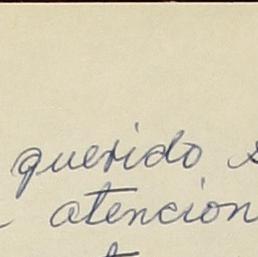 querido
atencion